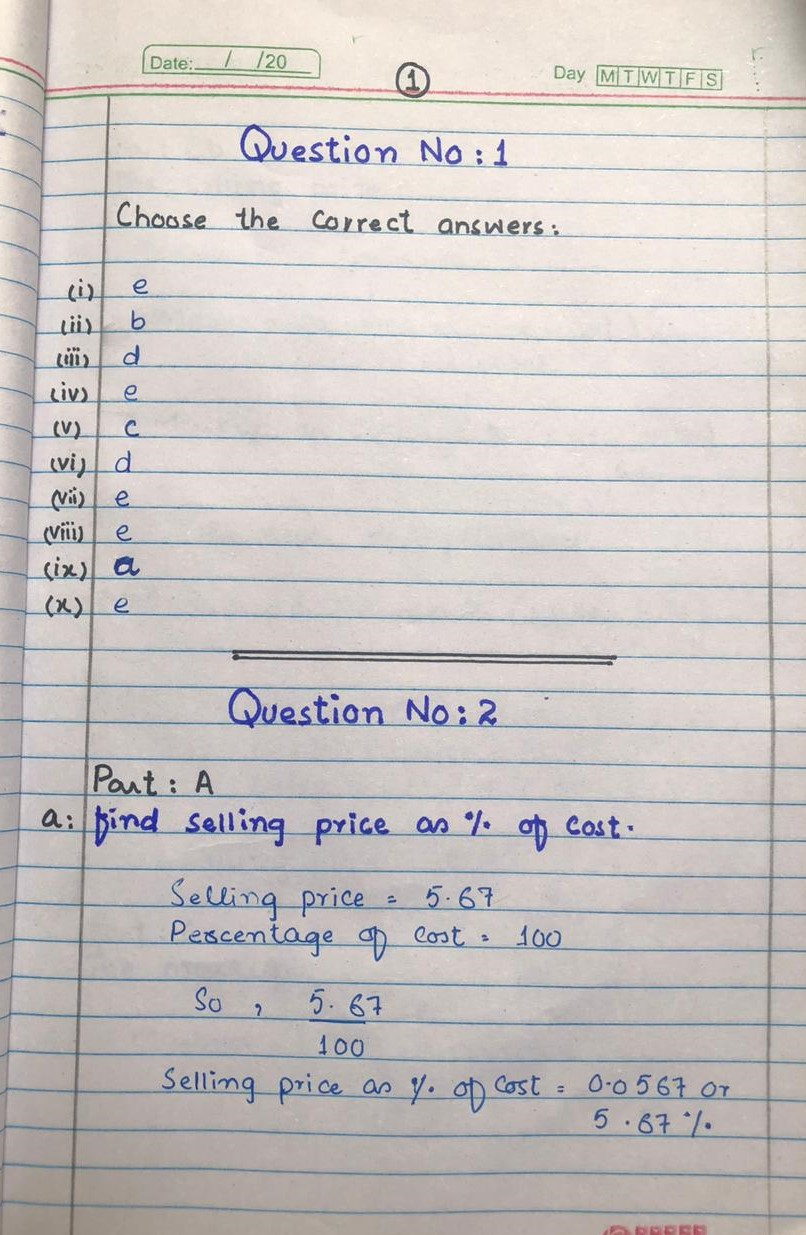 Date: / /20
1
Day M T W T F S
Question No : 1
Choose the correct answers :
(i) e
(ii) b
(iii) d
(iv) e
(v) c
(vi) d
(vii) e
(viii) e
(ix) a
(x) e
Question No : 2
Part : A
a: find selling price as % of cost.
Selling price = 5.67
Percentage of cost = 100
So , 5.67
100
Selling price as % of cost = 0.0567 or
5.67 %